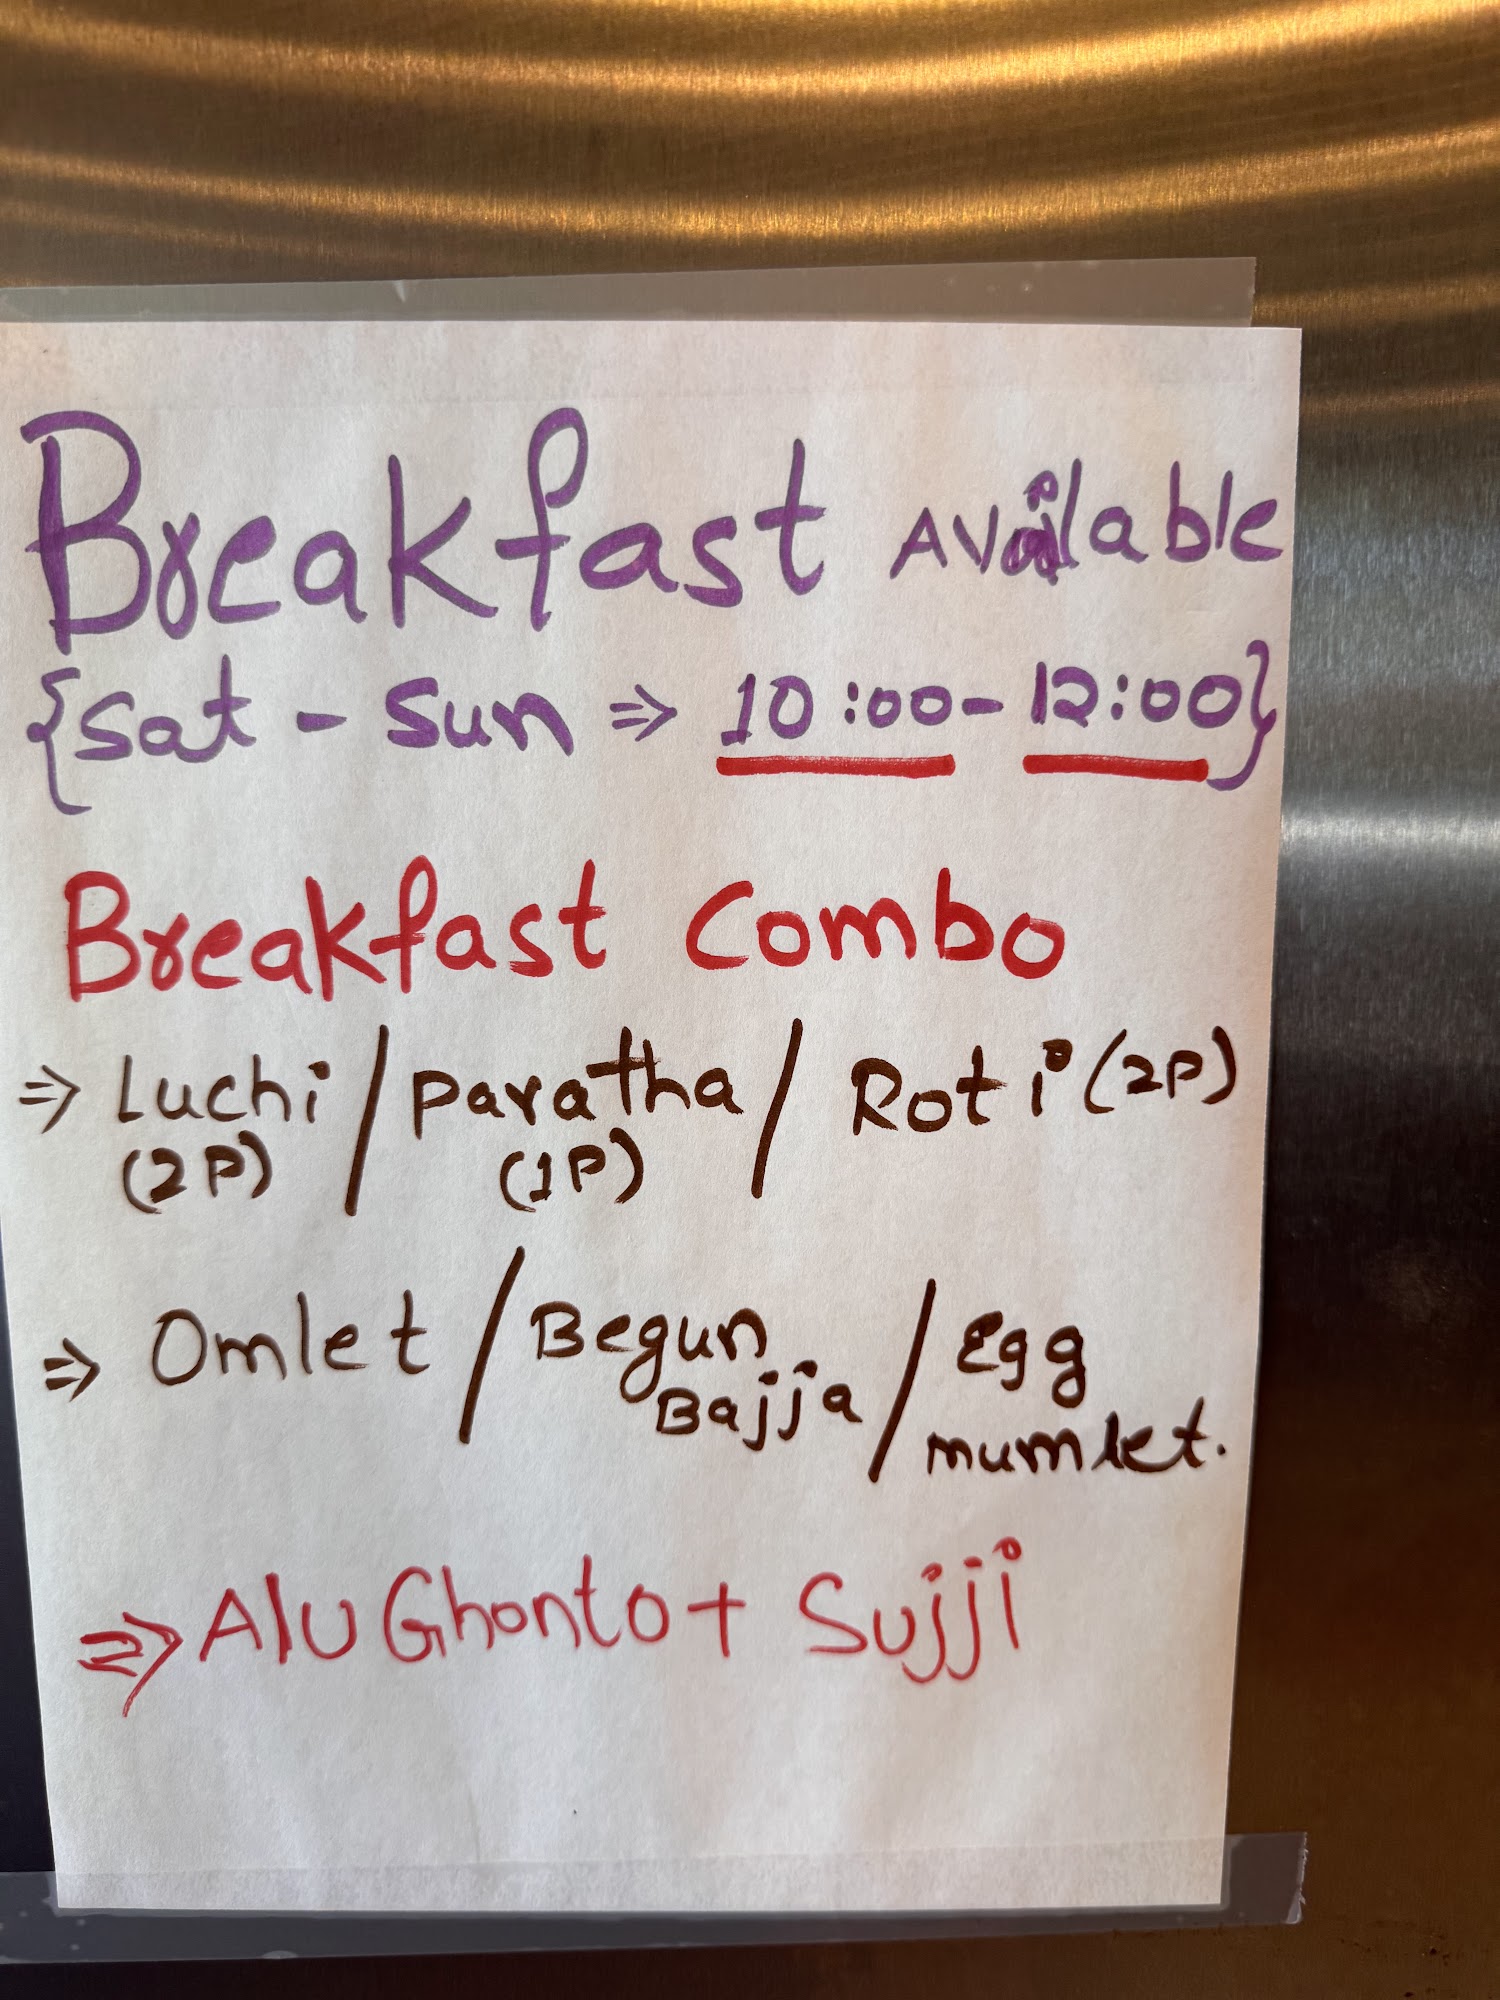 Breakfast Available
{Sat - Sun ⇒ 10:00 - 12:00}
Breakfast Combo
⇒ Luchi / Paratha / Roti (2P)
(2P) (1P)
⇒ Omlet / Begun Bajja / Egg mumlet.
⇒ Alu Ghonto + Sujji